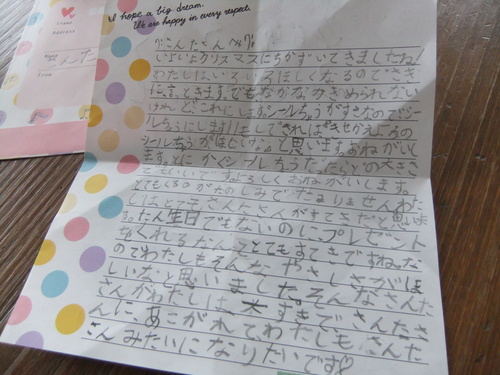 I hope a big dream.
We are happy in every respect.
サンタさんへ
いよいよクリスマスにちかずいてきましたね!
わたしはいろいろほしくなるのでさき
に言っときます。でもなかなかきめられない
けれど、これにいます。シールちょうがすきなのでシー
ルちょうにします!!そしてできれば きせかえ の
シールちょうがほしいな。と思います。おねがいし
ます。とにかくシールちょうだったらどの大きさ
でもいいです。よろしくおねがいします。
とてもくるのがたのしみでたまりません。わた
しはとってもサンタさんがすてきだと思いま
す。たん生日でもないのに、プレゼント
をくれるなんてとてもすてきですね。な
のでわたしもそんな やさしさがほ
しいなと思いました。そんなサンタ
さんがわたしは 大すきで、さんたさ
んに、あこがれて、わたしも さんた
さんみたいになりたいです♡